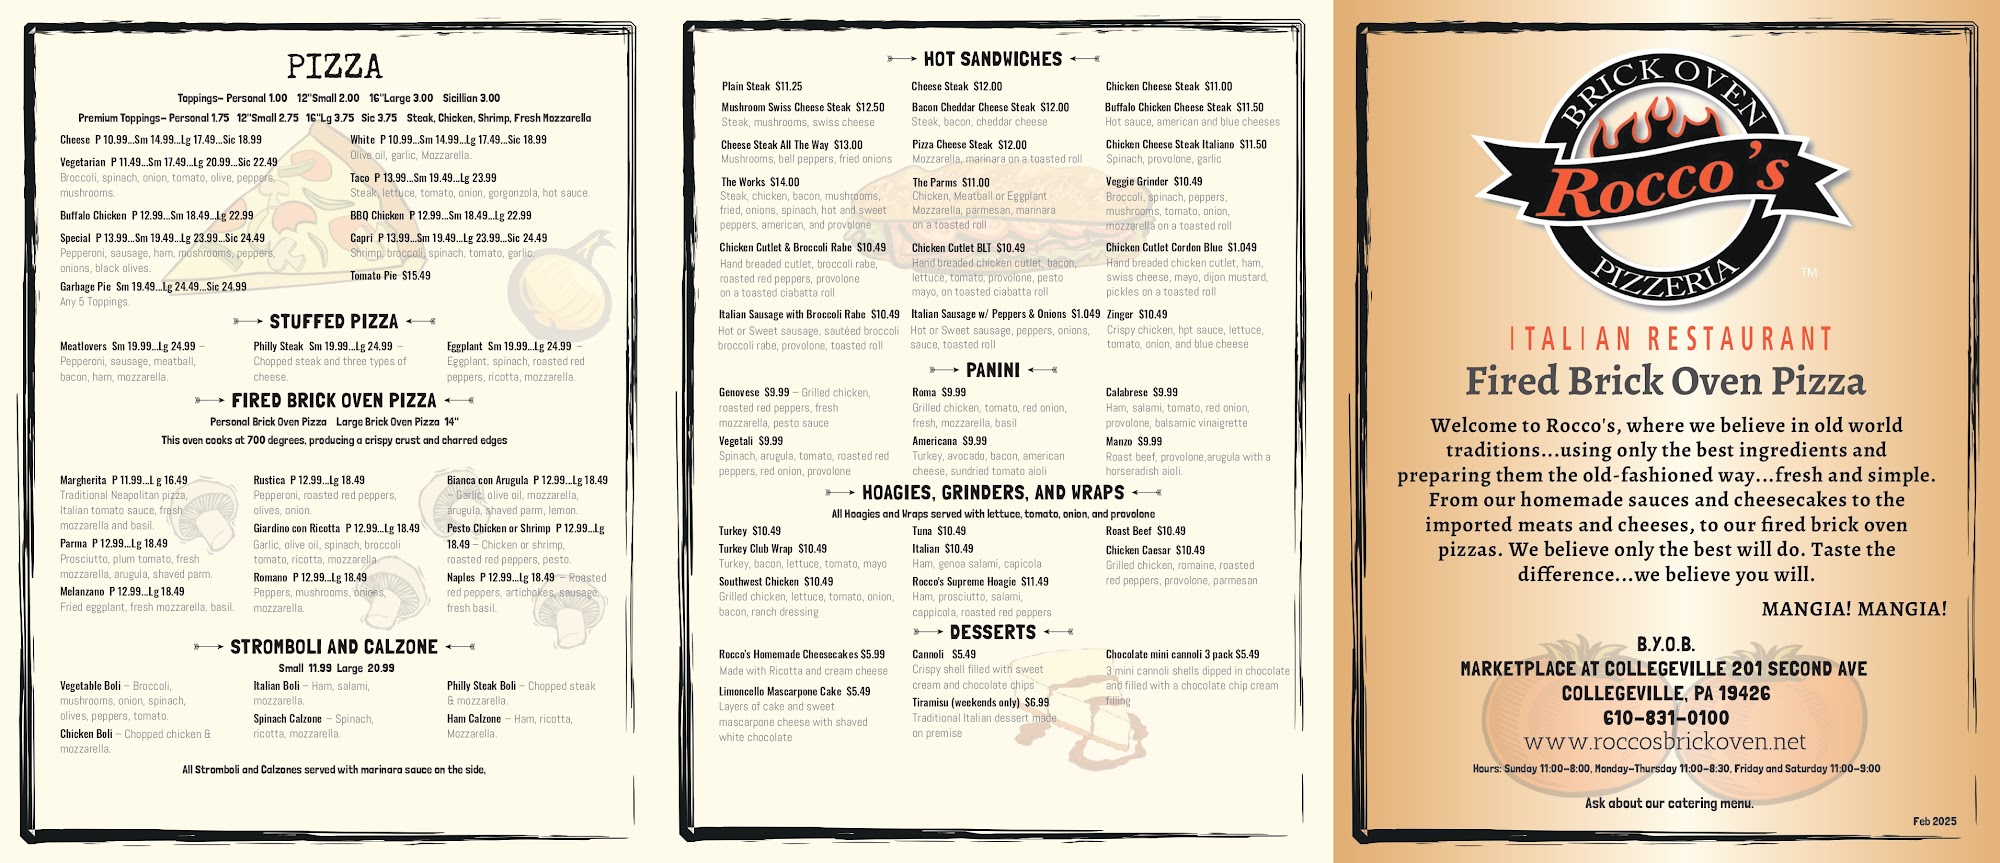 PIZZA
Toppings– Personal 1.00 12"Small 2.00 16"Large 3.00 Sicillian 3.00
Premium Toppings– Personal 1.75 12"Small 2.75 16"Lg 3.75 Sic 3.75 Steak, Chicken, Shrimp, Fresh Mozzarella
Cheese P 10.99...Sm 14.99...Lg 17.49...Sic 18.99
Vegetarian P 11.49...Sm 17.49...Lg 20.99...Sic 22.49
Broccoli, spinach, onion, tomato, olive, peppers,
mushrooms.
Buffalo Chicken P 12.99...Sm 18.49...Lg 22.99
Special P 13.99...Sm 19.49...Lg 23.99...Sic 24.49
Pepperoni, sausage, ham, mushrooms, peppers,
onions, black olives.
Garbage Pie Sm 19.49...Lg 24.49...Sic 24.99
Any 5 Toppings.
White P 10.99...Sm 14.99...Lg 17.49...Sic 18.99
Olive oil, garlic, Mozzarella.
Taco P 13.99...Sm 19.49...Lg 23.99
Steak, lettuce, tomato, onion, gorgonzola, hot sauce.
BBQ Chicken P 12.99...Sm 18.49...Lg 22.99
Capri P 13.99...Sm 19.49...Lg 23.99...Sic 24.49
Shrimp, broccoli, spinach, tomato, garlic.
Tomato Pie $15.49
STUFFED PIZZA
Meatlovers Sm 19.99...Lg 24.99 –
Pepperoni, sausage, meatball,
bacon, ham, mozzarella.
Philly Steak Sm 19.99...Lg 24.99 –
Chopped steak and three types of
cheese.
Eggplant Sm 19.99...Lg 24.99 –
Eggplant, spinach, roasted red
peppers, ricotta, mozzarella.
FIRED BRICK OVEN PIZZA
Personal Brick Oven Pizza Large Brick Oven Pizza 14"
This oven cooks at 700 degrees, producing a crispy crust and charred edges
Margherita P 11.99...Lg 16.49
Traditional Neapolitan pizza,
Italian tomato sauce, fresh
mozzarella and basil.
Parma P 12.99...Lg 18.49
Prosciutto, plum tomato, fresh
mozzarella, arugula, shaved parm.
Melanzano P 12.99...Lg 18.49
Fried eggplant, fresh mozzarella, basil.
Rustica P 12.99...Lg 18.49
Pepperoni, roasted red peppers,
olives, onion.
Giardino con Ricotta P 12.99...Lg 18.49
Garlic, olive oil, spinach, broccoli
tomato, ricotta, mozzarella.
Romano P 12.99...Lg 18.49
Peppers, mushrooms, onions,
mozzarella.
Bianca con Arugula P 12.99...Lg 18.49
– Garlic, olive oil, mozzarella,
arugula, shaved parm, lemon.
Pesto Chicken or Shrimp P 12.99...Lg
18.49 – Chicken or shrimp,
roasted red peppers, pesto.
Naples P 12.99...Lg 18.49 – Roasted
red peppers, artichokes, sausage,
fresh basil.
STROMBOLI AND CALZONE
Small 11.99 Large 20.99
Vegetable Boli – Broccoli,
mushrooms, onion, spinach,
olives, peppers, tomato.
Chicken Boli – Chopped chicken &
mozzarella.
Italian Boli – Ham, salami,
mozzarella.
Spinach Calzone – Spinach,
ricotta, mozzarella.
Philly Steak Boli – Chopped steak
& mozzarella.
Ham Calzone – Ham, ricotta,
Mozzarella.
All Stromboli and Calzones served with marinara sauce on the side,
HOT SANDWICHES
Plain Steak $11.25
Cheese Steak $12.00
Chicken Cheese Steak $11.00
Mushroom Swiss Cheese Steak $12.50
Steak, mushrooms, swiss cheese
Bacon Cheddar Cheese Steak $12.00
Steak, bacon, cheddar cheese
Buffalo Chicken Cheese Steak $11.50
Hot sauce, american and blue cheeses
Cheese Steak All The Way $13.00
Mushrooms, bell peppers, fried onions
Pizza Cheese Steak $12.00
Mozzarella, marinara on a toasted roll
Chicken Cheese Steak Italiano $11.50
Spinach, provolone, garlic
The Works $14.00
Steak, chicken, bacon, mushrooms,
fried, onions, spinach, hot and sweet
peppers, american, and provolone
The Parms $11.00
Chicken, Meatball or Eggplant
Mozzarella, parmesan, marinara
on a toasted roll
Veggie Grinder $10.49
Broccoli, spinach, peppers,
mushrooms, tomato, onion,
mozzarella on a toasted roll
Chicken Cutlet & Broccoli Rabe $10.49
Hand breaded cutlet, broccoli rabe,
roasted red peppers, provolone
on a toasted ciabatta roll
Chicken Cutlet BLT $10.49
Hand breaded chicken cutlet, bacon,
lettuce, tomato, provolone, pesto
mayo, on toasted ciabatta roll
Chicken Cutlet Cordon Blue $1.049
Hand breaded chicken cutlet, ham,
swiss cheese, mayo, dijon mustard,
pickles on a toasted roll
Italian Sausage with Broccoli Rabe $10.49
Hot or Sweet sausage, sautéed broccoli
broccoli rabe, provolone, toasted roll
Italian Sausage w/ Peppers & Onions $1.049
Hot or Sweet sausage, peppers, onions,
sauce, toasted roll
Zinger $10.49
Crispy chicken, hpt sauce, lettuce,
tomato, onion, and blue cheese
PANINI
Genovese $9.99 – Grilled chicken,
roasted red peppers, fresh
mozzarella, pesto sauce
Roma $9.99
Grilled chicken, tomato, red onion,
fresh, mozzarella, basil
Calabrese $9.99
Ham, salami, tomato, red onion,
provolone, balsamic vinaigrette
Vegetali $9.99
Spinach, arugula, tomato, roasted red
peppers, red onion, provolone
Americana $9.99
Turkey, avocado, bacon, american
cheese, sundried tomato aioli
Manzo $9.99
Roast beef, provolone,arugula with a
horseradish aioli.
HOAGIES, GRINDERS, AND WRAPS
All Hoagies and Wraps served with lettuce, tomato, onion, and provolone
Turkey $10.49
Turkey Club Wrap $10.49
Turkey, bacon, lettuce, tomato, mayo
Southwest Chicken $10.49
Grilled chicken, lettuce, tomato, onion,
bacon, ranch dressing
Tuna $10.49
Italian $10.49
Ham, genoa salami, capicola
Rocco's Supreme Hoagie $11.49
Ham, prosciutto, salami,
cappicola, roasted red peppers
Roast Beef $10.49
Chicken Caesar $10.49
Grilled chicken, romaine, roasted
red peppers, provolone, parmesan
DESSERTS
Rocco's Homemade Cheesecakes $5.99
Made with Ricotta and cream cheese
Limoncello Mascarpone Cake $5.49
Layers of cake and sweet
mascarpone cheese with shaved
white chocolate
Cannoli $5.49
Crispy shell filled with sweet
cream and chocolate chips
Tiramisu (weekends only) $6.99
Traditional Italian dessert made
on premise
Chocolate mini cannoli 3 pack $5.49
3 mini cannoli shells dipped in chocolate
and filled with a chocolate chip cream
filling
BRICK OVEN
Rocco's
PIZZERIA
TM
ITALIAN RESTAURANT
Fired Brick Oven Pizza
Welcome to Rocco's, where we believe in old world
traditions...using only the best ingredients and
preparing them the old-fashioned way...fresh and simple.
From our homemade sauces and cheesecakes to the
imported meats and cheeses, to our fired brick oven
pizzas. We believe only the best will do. Taste the
difference...we believe you will.
MANGIA! MANGIA!
B.Y.O.B.
MARKETPLACE AT COLLEGEVILLE 201 SECOND AVE
COLLEGEVILLE, PA 19426
610-831-0100
www.roccosbrickoven.net
Hours: Sunday 11:00-8:00, Monday-Thursday 11:00-8:30, Friday and Saturday 11:00-9:00
Ask about our catering menu.
Feb 2025